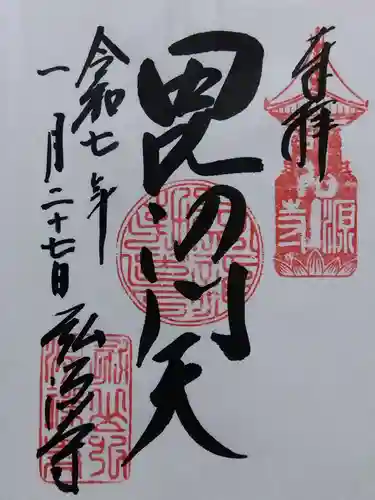 奉拝
毘沙門天
令和七年
一月二十七日
弘源寺